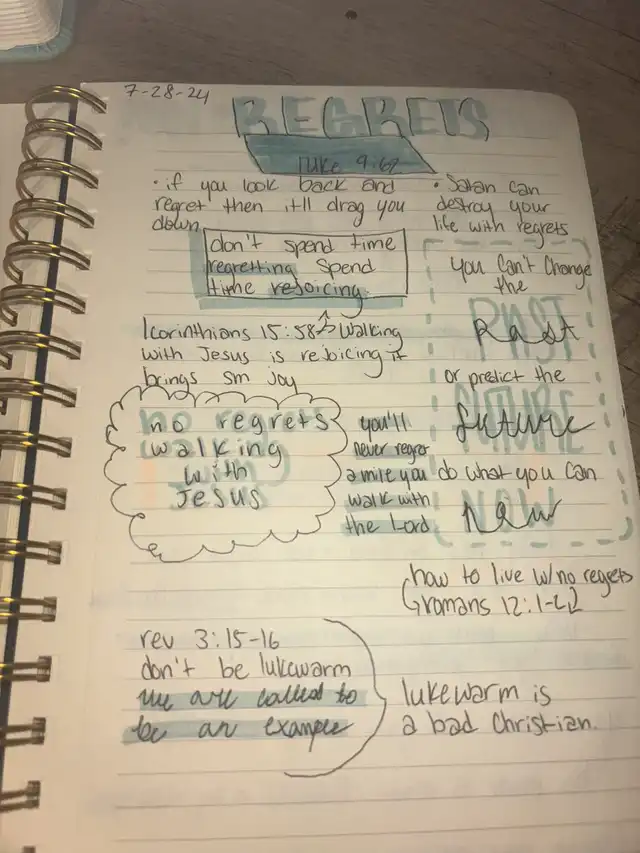 7-28-24
REGRETS
luke 9:62
• if you look back and
regret then it'll drag you
down
• Satan can
destroy your
life with regrets
don't spend time
regretting spend
time rejoicing
1 corinthians 15:58 → Walking
with Jesus is rejoicing it
brings sm joy
You Can't Change
the
PAST
Past
or predict the
FUTURE
future
do what you can
NOW
now
no regrets
walking
with
Jesus
you'll
never regret
a mile you
walk with
the Lord
how to live w/no regrets
romans 12:1-2
rev 3:15-16
don't be lukewarm
we are called to
be an example
lukewarm is
a bad Christian.